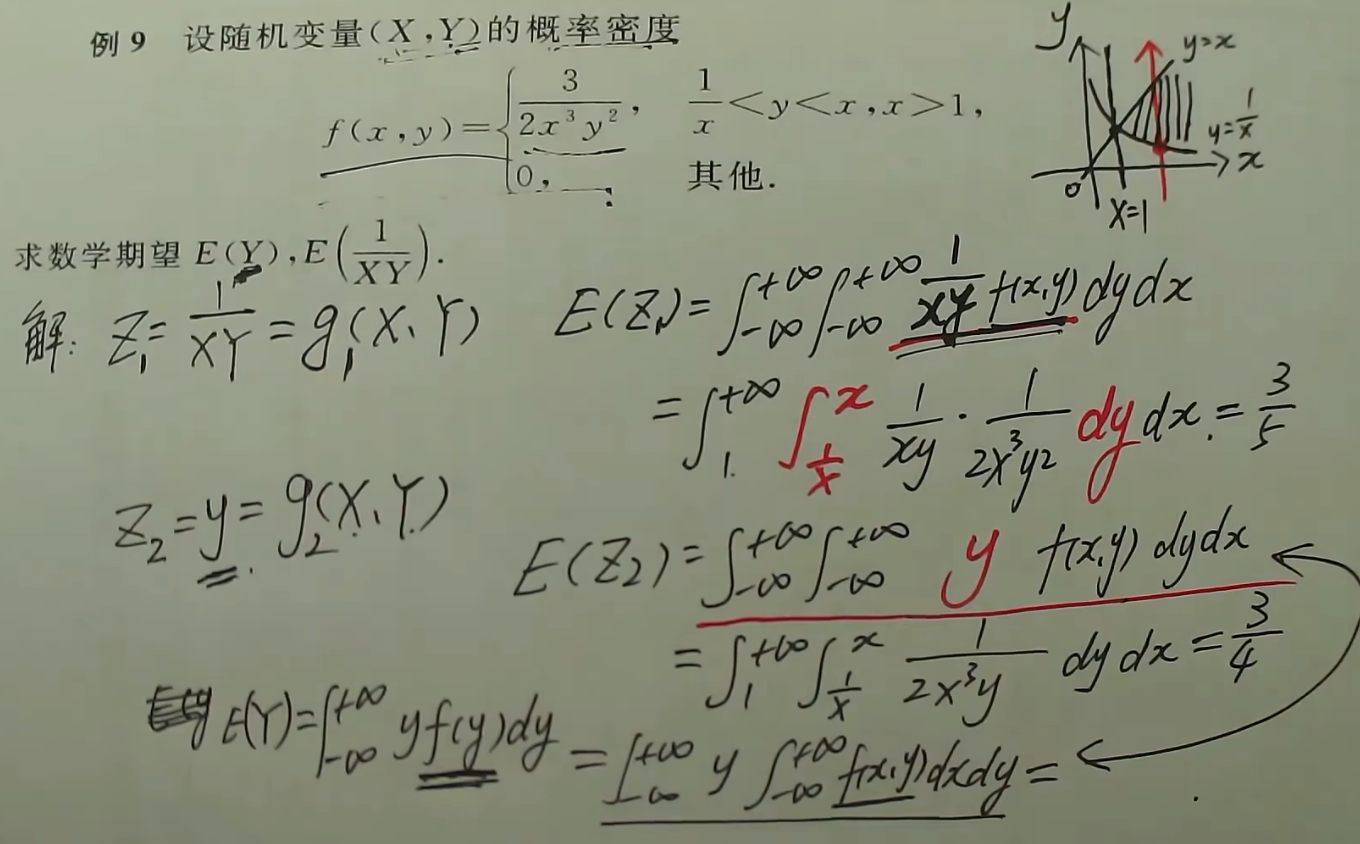 例 9 设随机变量(X,Y)的概率密度
f(x,y)={ 3/(2x³y²), 1/x<y<x,x>1,
0, 其他.
y
y=x
y=1/x
x
0
X=1
求数学期望 E(Y),E(1/XY).
解: Z₁= 1/XY = g₁(X、Y)
E(Z₁)= ∫_{-∞}^{+∞} ∫_{-∞}^{+∞} 1/xy f(x,y) dy dx
= ∫_{1}^{+∞} ∫_{1/x}^{x} 1/xy · 1/(2x³y²) dy dx = 3/5
Z₂=y= g₂(X、Y)
E(Z₂)= ∫_{-∞}^{+∞} ∫_{-∞}^{+∞} y f(x,y) dydx
= ∫_{1}^{+∞} ∫_{1/x}^{x} 1/(2x³y) dy dx = 3/4
E(Y)= ∫_{-∞}^{+∞} y f(y) dy = ∫_{-∞}^{+∞} y ∫_{-∞}^{+∞} f(x,y) dxdy =